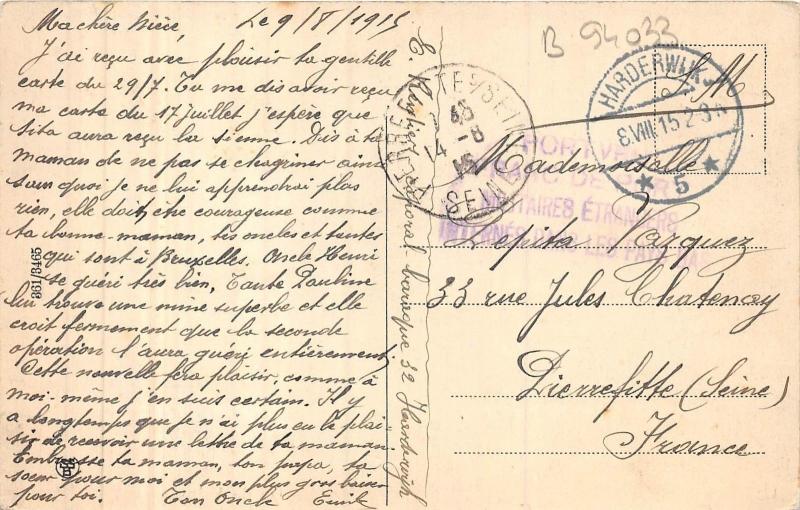 Ma chère Nièce, Le 9/8/1915
J'ai reçu avec plaisir ta gentille
carte du 29/7. Tu me dis avoir reçu
ma carte du 17 juillet j'espère que
tita aura reçu la sienne. Dis à ta
maman de ne pas se chagriner ainsi
sans quoi je ne lui apprendrai plus
rien, elle doit être courageuse comme
ta bonne-maman, tes oncles et tantes
qui sont à Bruxelles. Oncle Henri
se guéri très bien, Tante Pauline
lui trouve une mine superbe et elle
croit fermement que la seconde
opération l'aura guéri entièrement.
Cette nouvelle fera plaisir, comme à
moi-même j'en suis certain. Il y
a longtemps que je n'ai plus eu le plai-
sir de recevoir une lettre de ta maman.
Embrasse ta maman, ton papa, ta
sœur pour moi et mon plus gros baiser
pour toi. Ton Oncle Emile
caporal baraque 32 Harderwijk
361/3465
B 94033
S. M.
HARDERWIJK
8.VIII.15 2-3 N
5
SEINE
PORT
MILITAIRES ÉTRANGERS
INTERNÉS DANS LES PAYS-BAS
Mademoiselle
Pepita Vazquez
33 rue Jules Chatenay
Pierrefitte (Seine)
France